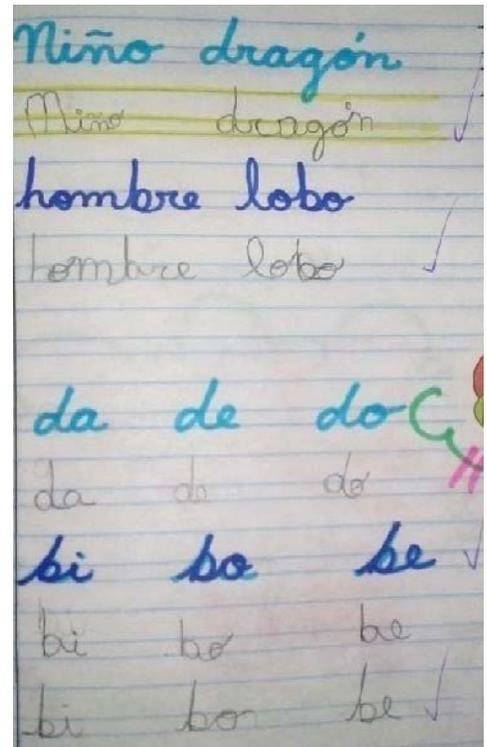 Niño dragón
Niño dragón
hombre lobo
hombre lobo
da de do
da de do
bi bo be
bi bo be
bi bo be